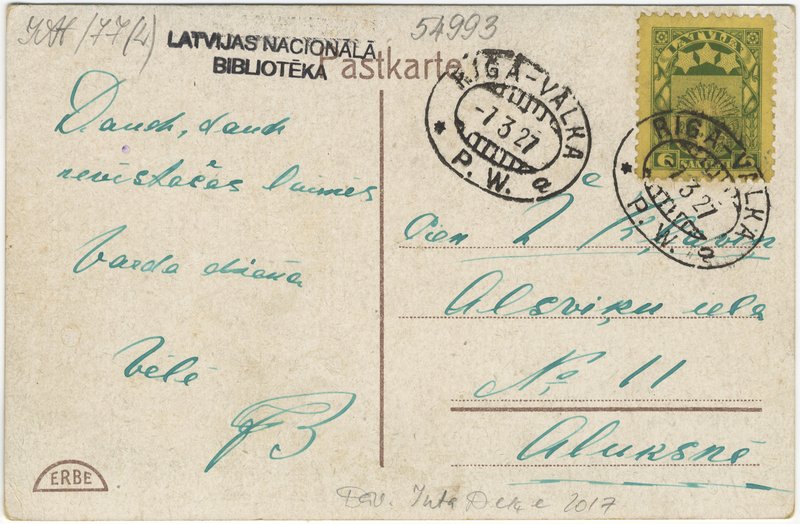 54993
LATVIJAS NACIONĀLĀ
BIBLIOTĒKA
Pastkarte
RIGA-VALKA
-7.3.27
* P.W. a
LATVIJA
6
RIGA-VALKA
-7.3.27
* P.W. a
Daudz, daudz
nevīstošas laimes
Varda dienā
Vēlē
Cien
Alsviķu iela
No 11
Aluksnē
ERBE
Dāv. Inta 2017